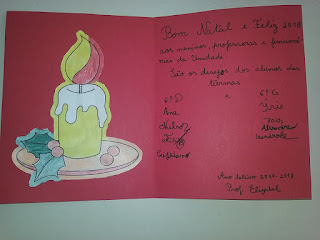 Bom Natal e Feliz 2018
aos meninos, professores e funcioná-
rios da Unidade.
São os desejos dos alunos das
turmas
6º D e 6º G
Ana
Íris
Cristiano
Ano letivo 2017-2018
Prof.